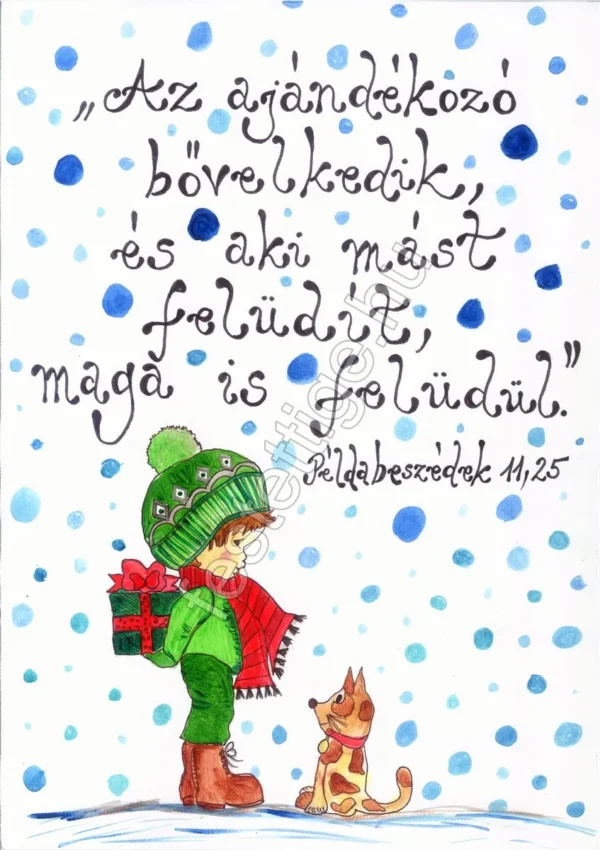 „Az ajándékozó
bővelkedik,
és aki mást
felüdít,
maga is felüdül."
Példabeszédek 11,25
festettige.hu